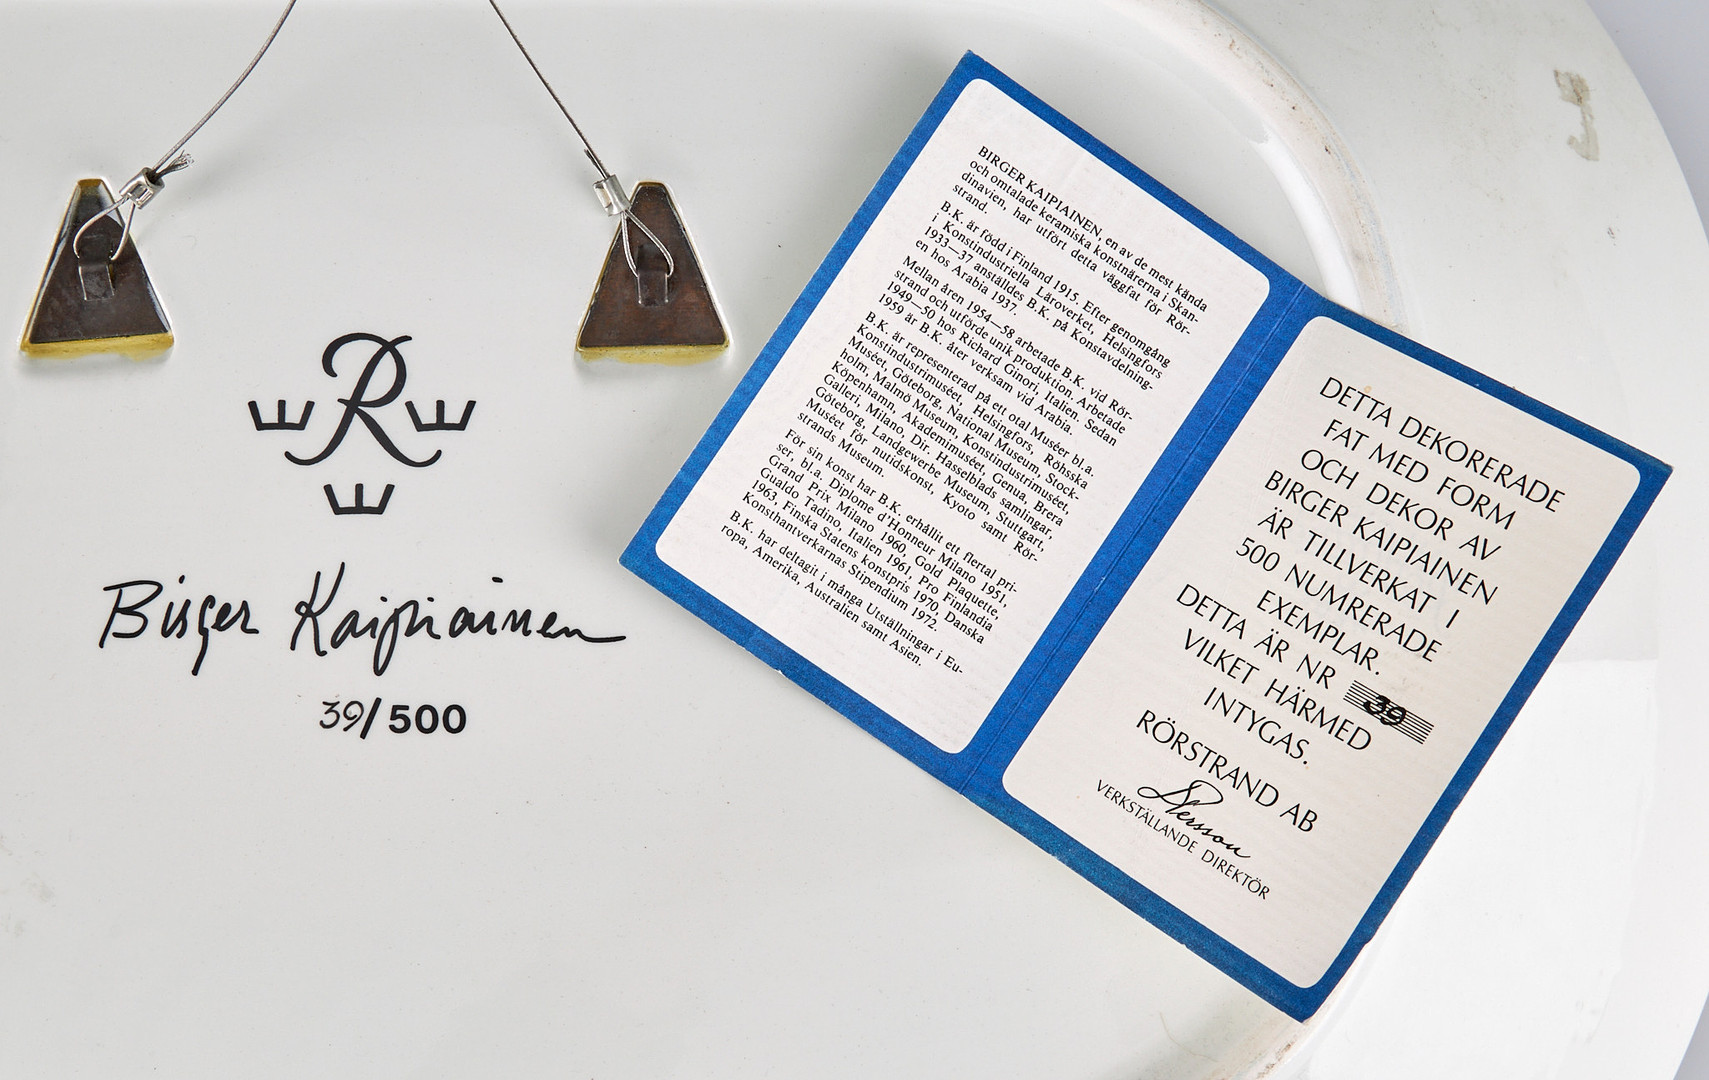 R
Birger Kaipiainen
39/500
BIRGER KAIPIAINEN, en av de mest kända
och omtalade keramiska konstnärerna i Skan-
dinavien, har utfört detta väggfat för Rör-
strand.
B.K. är född i Finland 1915. Efter genomgång
i Konstindustriella Läroverket, Helsingfors
1933—37 anställdes B.K. på Konstavdelning-
en hos Arabia 1937.
Mellan åren 1954—58 arbetade B.K. vid Rör-
strand och utförde unik produktion. Arbetade
1949—50 hos Richard Ginori, Italien. Sedan
1959 är B.K. åter verksam vid Arabia.
B.K. är representerad på ett otal Muséer bl.a.
Konstindustrimuséet, Helsingfors, Röhsska
Muséet, Göteborg, National Museum, Stock-
holm, Malmö Museum, Konstindustrimuséet,
Köpenhamn, Akademimuséet, Genua, Brera
Galleri, Milano, Dr. Hasselblads samlingar,
Göteborg, Landgewerbe Museum, Stuttgart,
Muséet för nutidskonst, Kyoto samt Rör-
strands Museum.
För sin konst har B.K. erhållit ett flertal pri-
ser, bl.a. Diplome d'Honneur Milano 1951,
Grand Prix Milano 1960, Gold Plaquette,
Gualdo Tadino, Italien 1961, Pro Finlandia
1963, Finska Statens konstpris 1970, Danska
Konsthantverkarnas Stipendium 1972.
B.K. har deltagit i många Utställningar i Eu-
ropa, Amerika, Australien samt Asien.
DETTA DEKORERADE
FAT MED FORM
OCH DEKOR AV
BIRGER KAIPIAINEN
ÄR TILLVERKAT I
500 NUMRERADE
EXEMPLAR.
DETTA ÄR NR 39
VILKET HÄRMED
INTYGAS.
RÖRSTRAND AB
Persson
VERKSTÄLLANDE DIREKTÖR